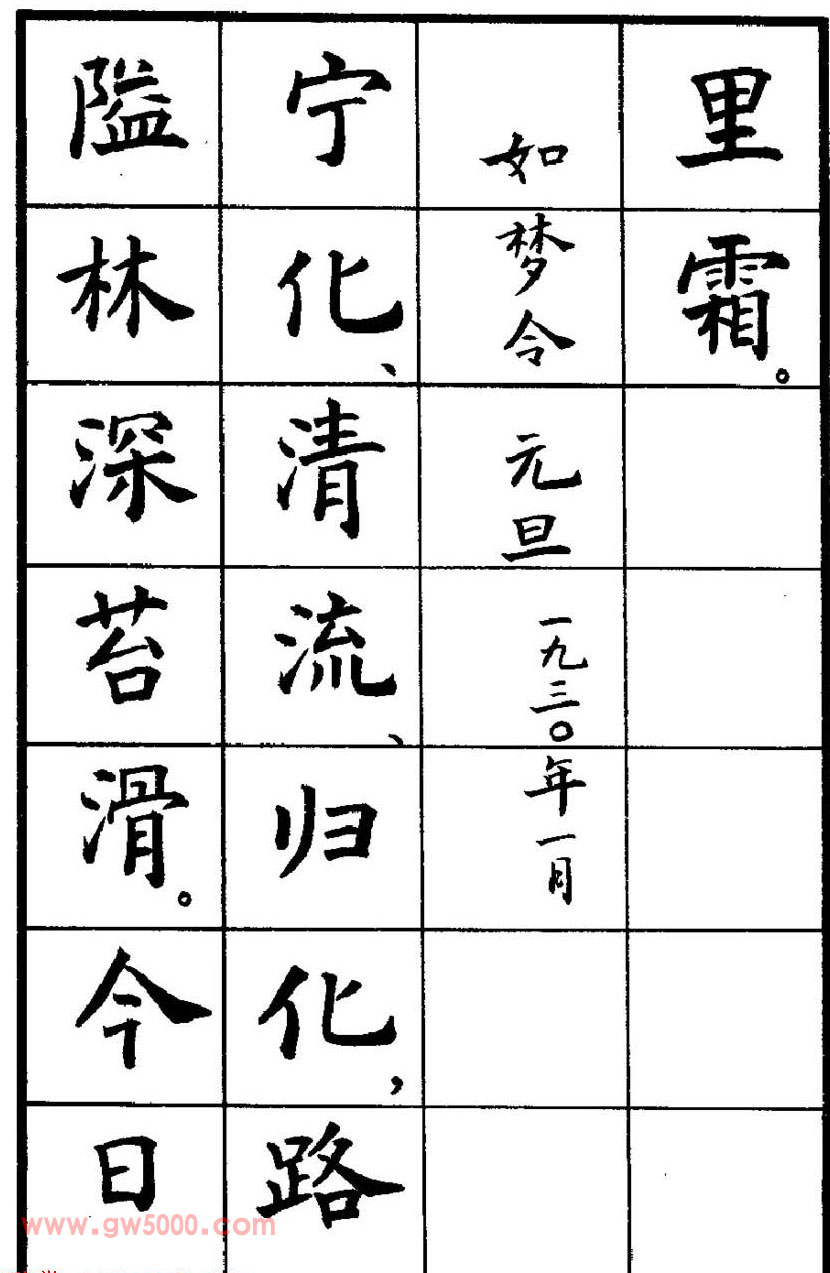 里霜。
如梦令 元旦 一九三〇年一月
宁化、清流、归化，路
隘林深苔滑。今日
www.gw5000.com